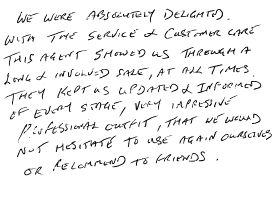 WE WERE ABSOLUTELY DELIGHTED.
WITH THE SERVICE & CUSTOMER CARE
THIS AGENT SHOWED US THROUGH A
LONG & INVOLVED SALE, AT ALL TIMES.
THEY KEPT US UPDATED & INFORMED
OF EVERY STAGE, VERY IMPRESIVE
PROFESSIONAL OUTFIT, THAT WE WOULD
NOT HESITATE TO USE AGAIN OURSELVES
OR RECOMMEND TO FRIENDS.